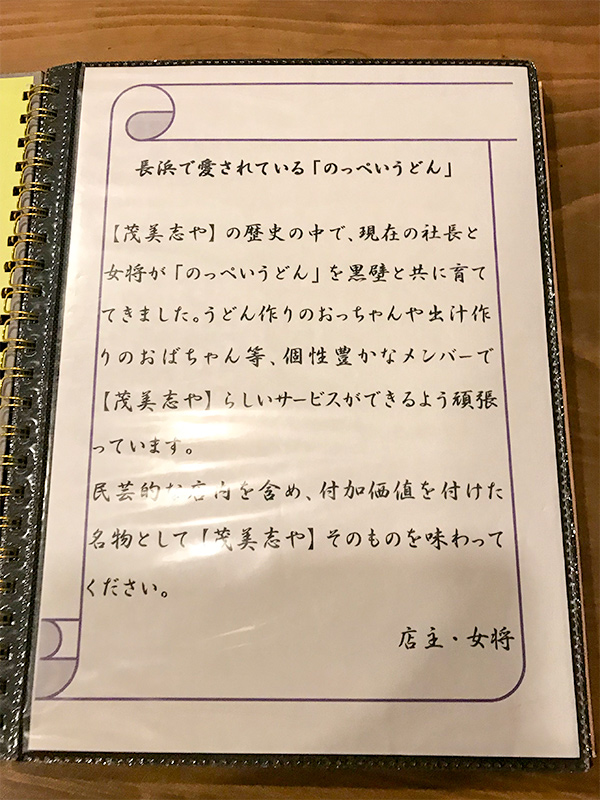 長浜で愛されている「のっぺいうどん」
【茂美志や】の歴史の中で、現在の社長と
女将が「のっぺいうどん」を黒壁と共に育て
てきました。うどん作りのおっちゃんや出汁作
りのおばちゃん等、個性豊かなメンバーで
【茂美志や】らしいサービスができるよう頑張
っています。
民芸的な店内を含め、付加価値を付けた
名物として【茂美志や】そのものを味わって
ください。
店主・女将